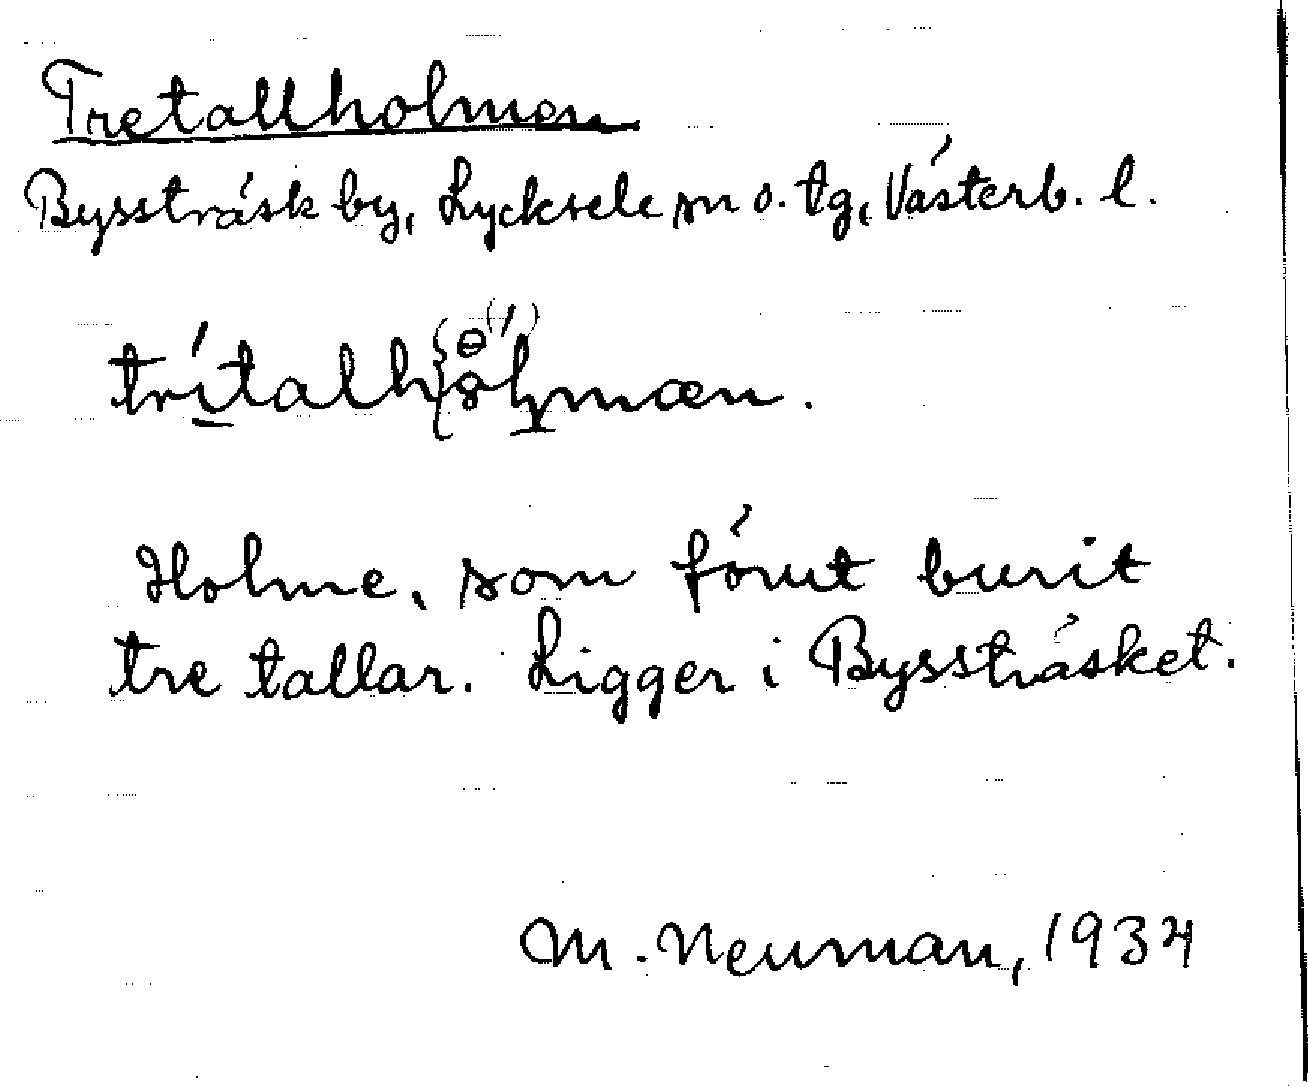 Tretallholmen
Byssträsk by, Lycksele sn o. tg, Västerb. l.
Holme, som förut burit
tre tallar. Ligger i Byssträsket.
M. Neuman, 1934